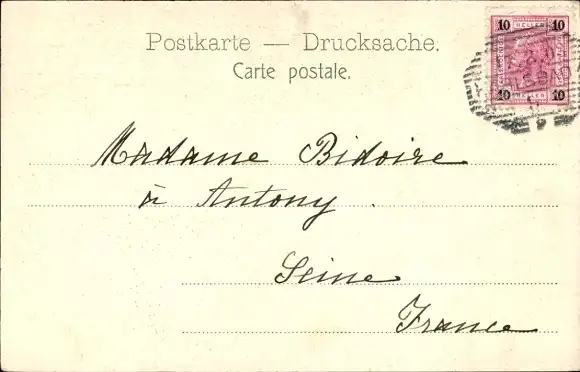 Postkarte — Drucksache.
Carte postale.
10 HELLER 10
10 HELLER 10
Madame Bidoire
à Antony.
Seine
France